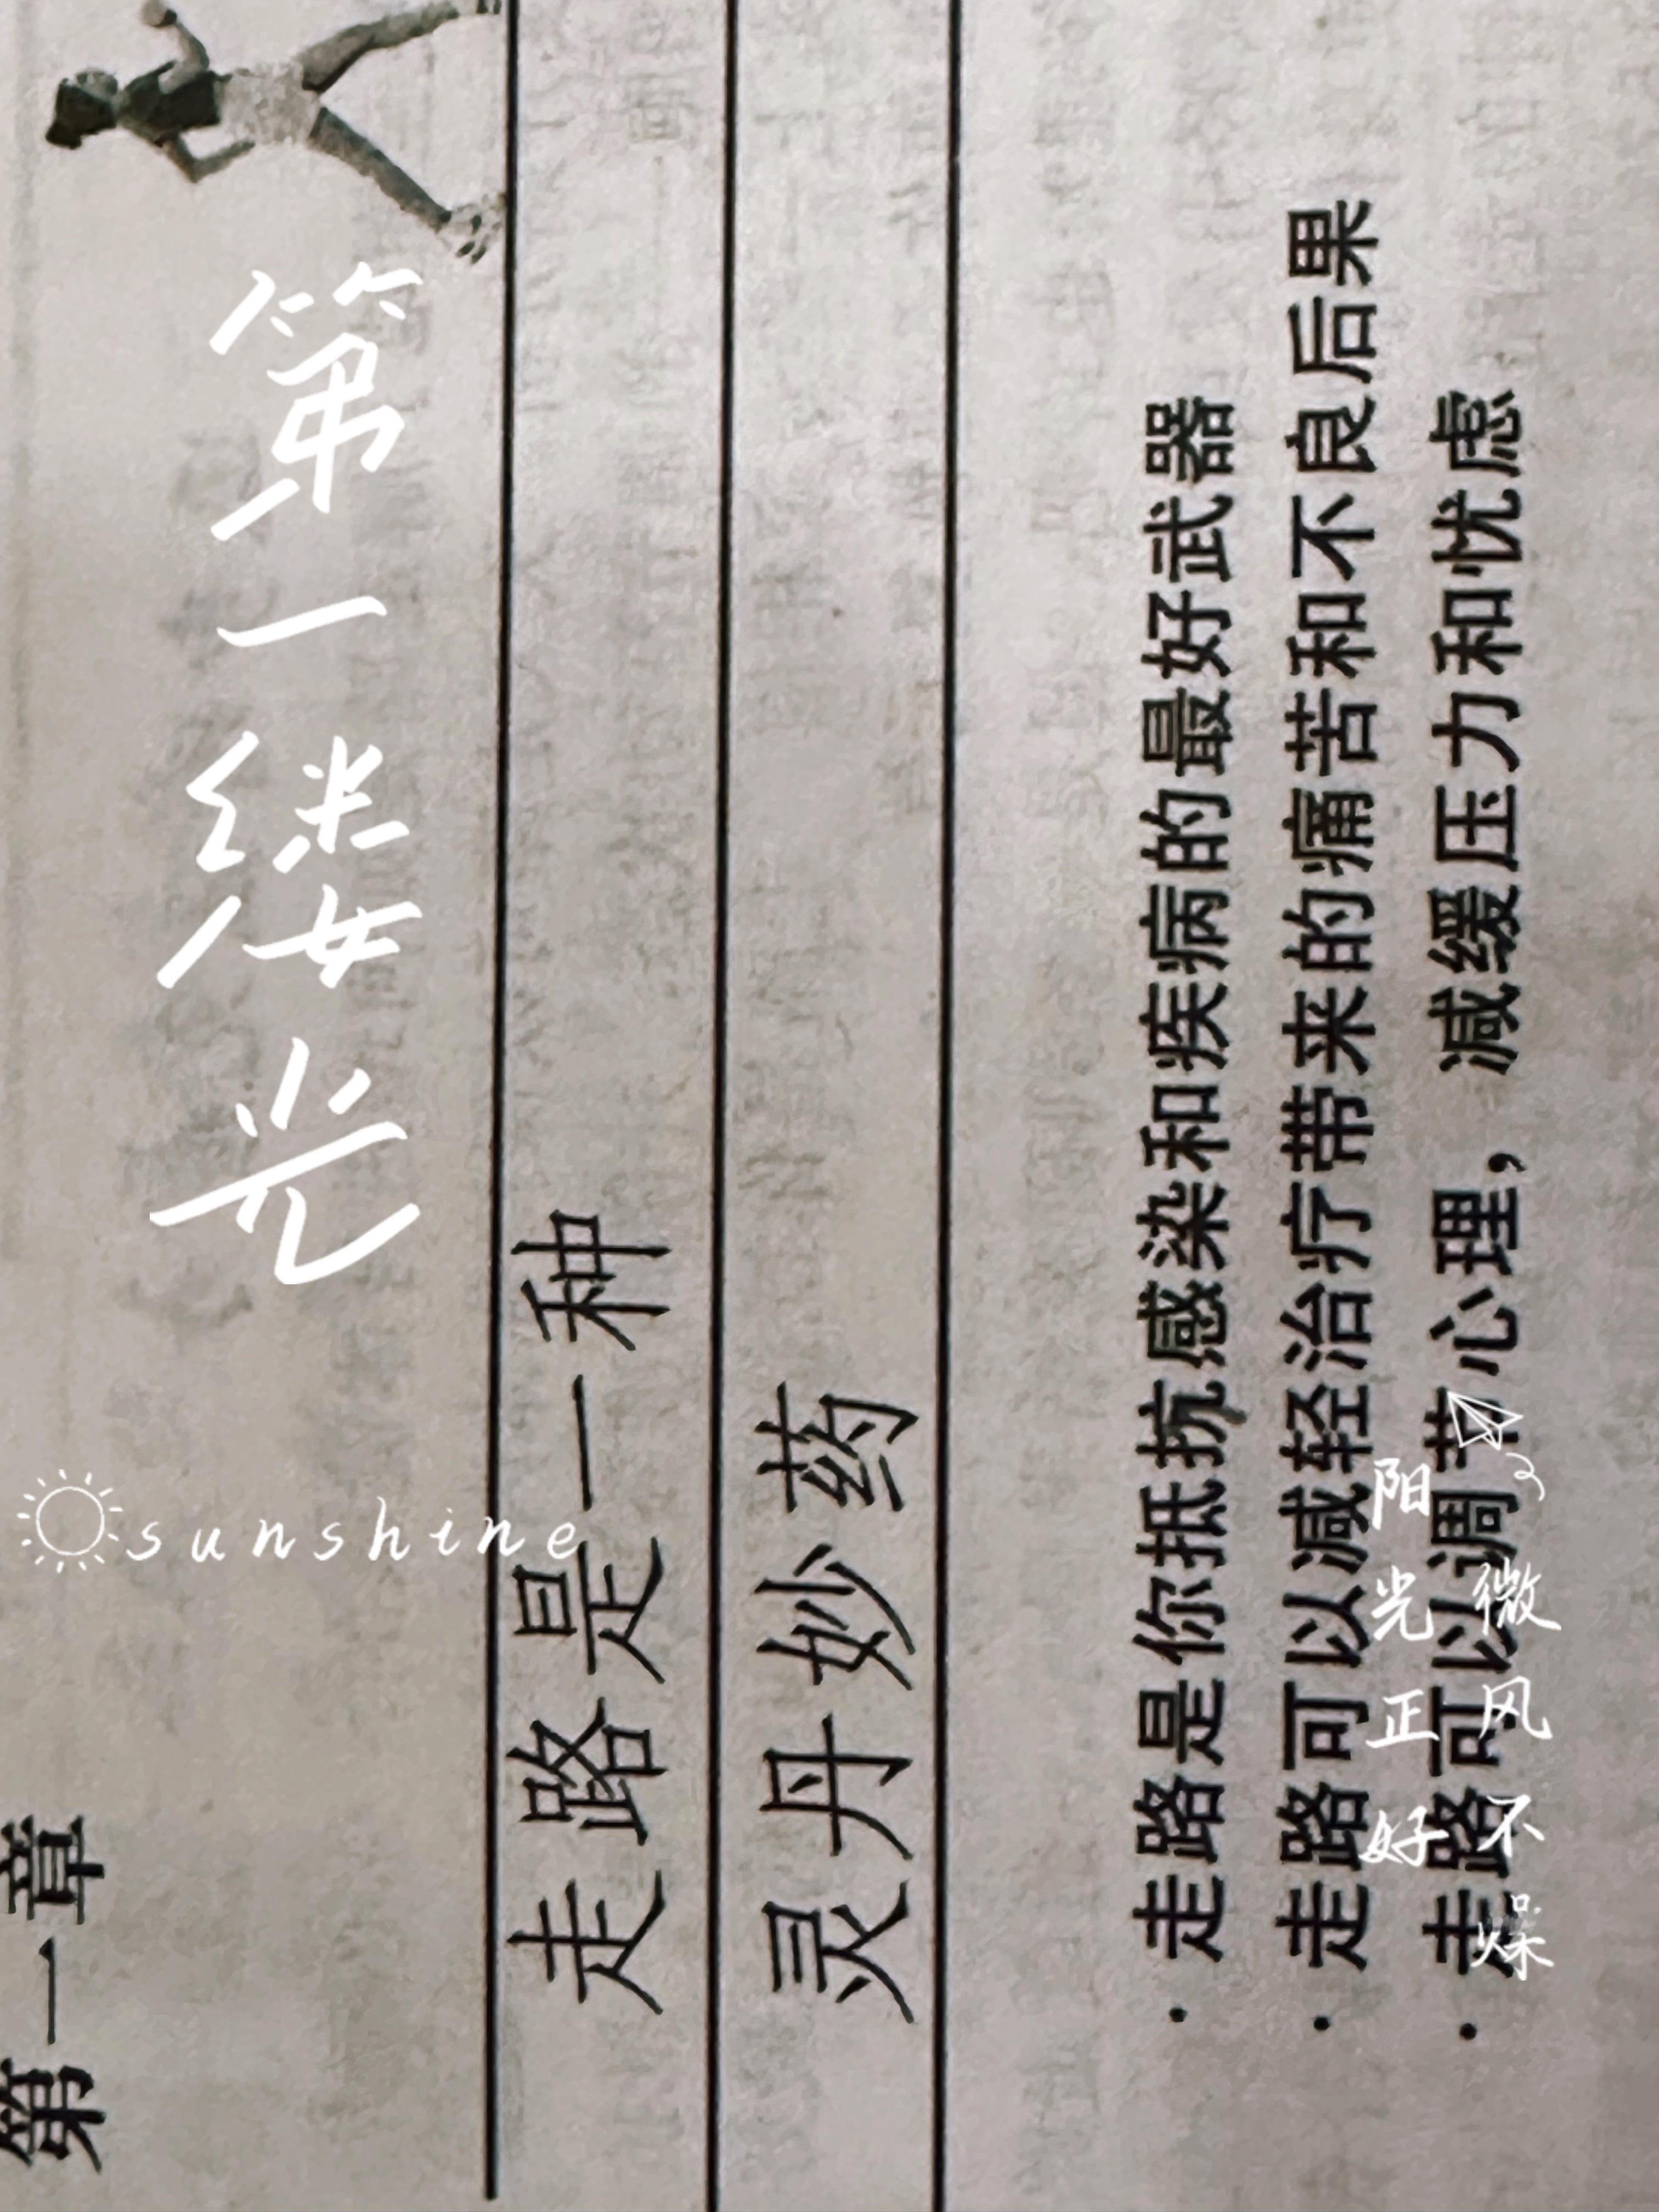 第一章
走路是一种
灵丹妙药
· 走路是你抵抗感染和疾病的最好武器
· 走路可以减轻治疗带来的痛苦和不良后果
· 走路可以调节心理，减缓压力和忧虑
第一缕光
sunshine
阳光正好
微风不燥